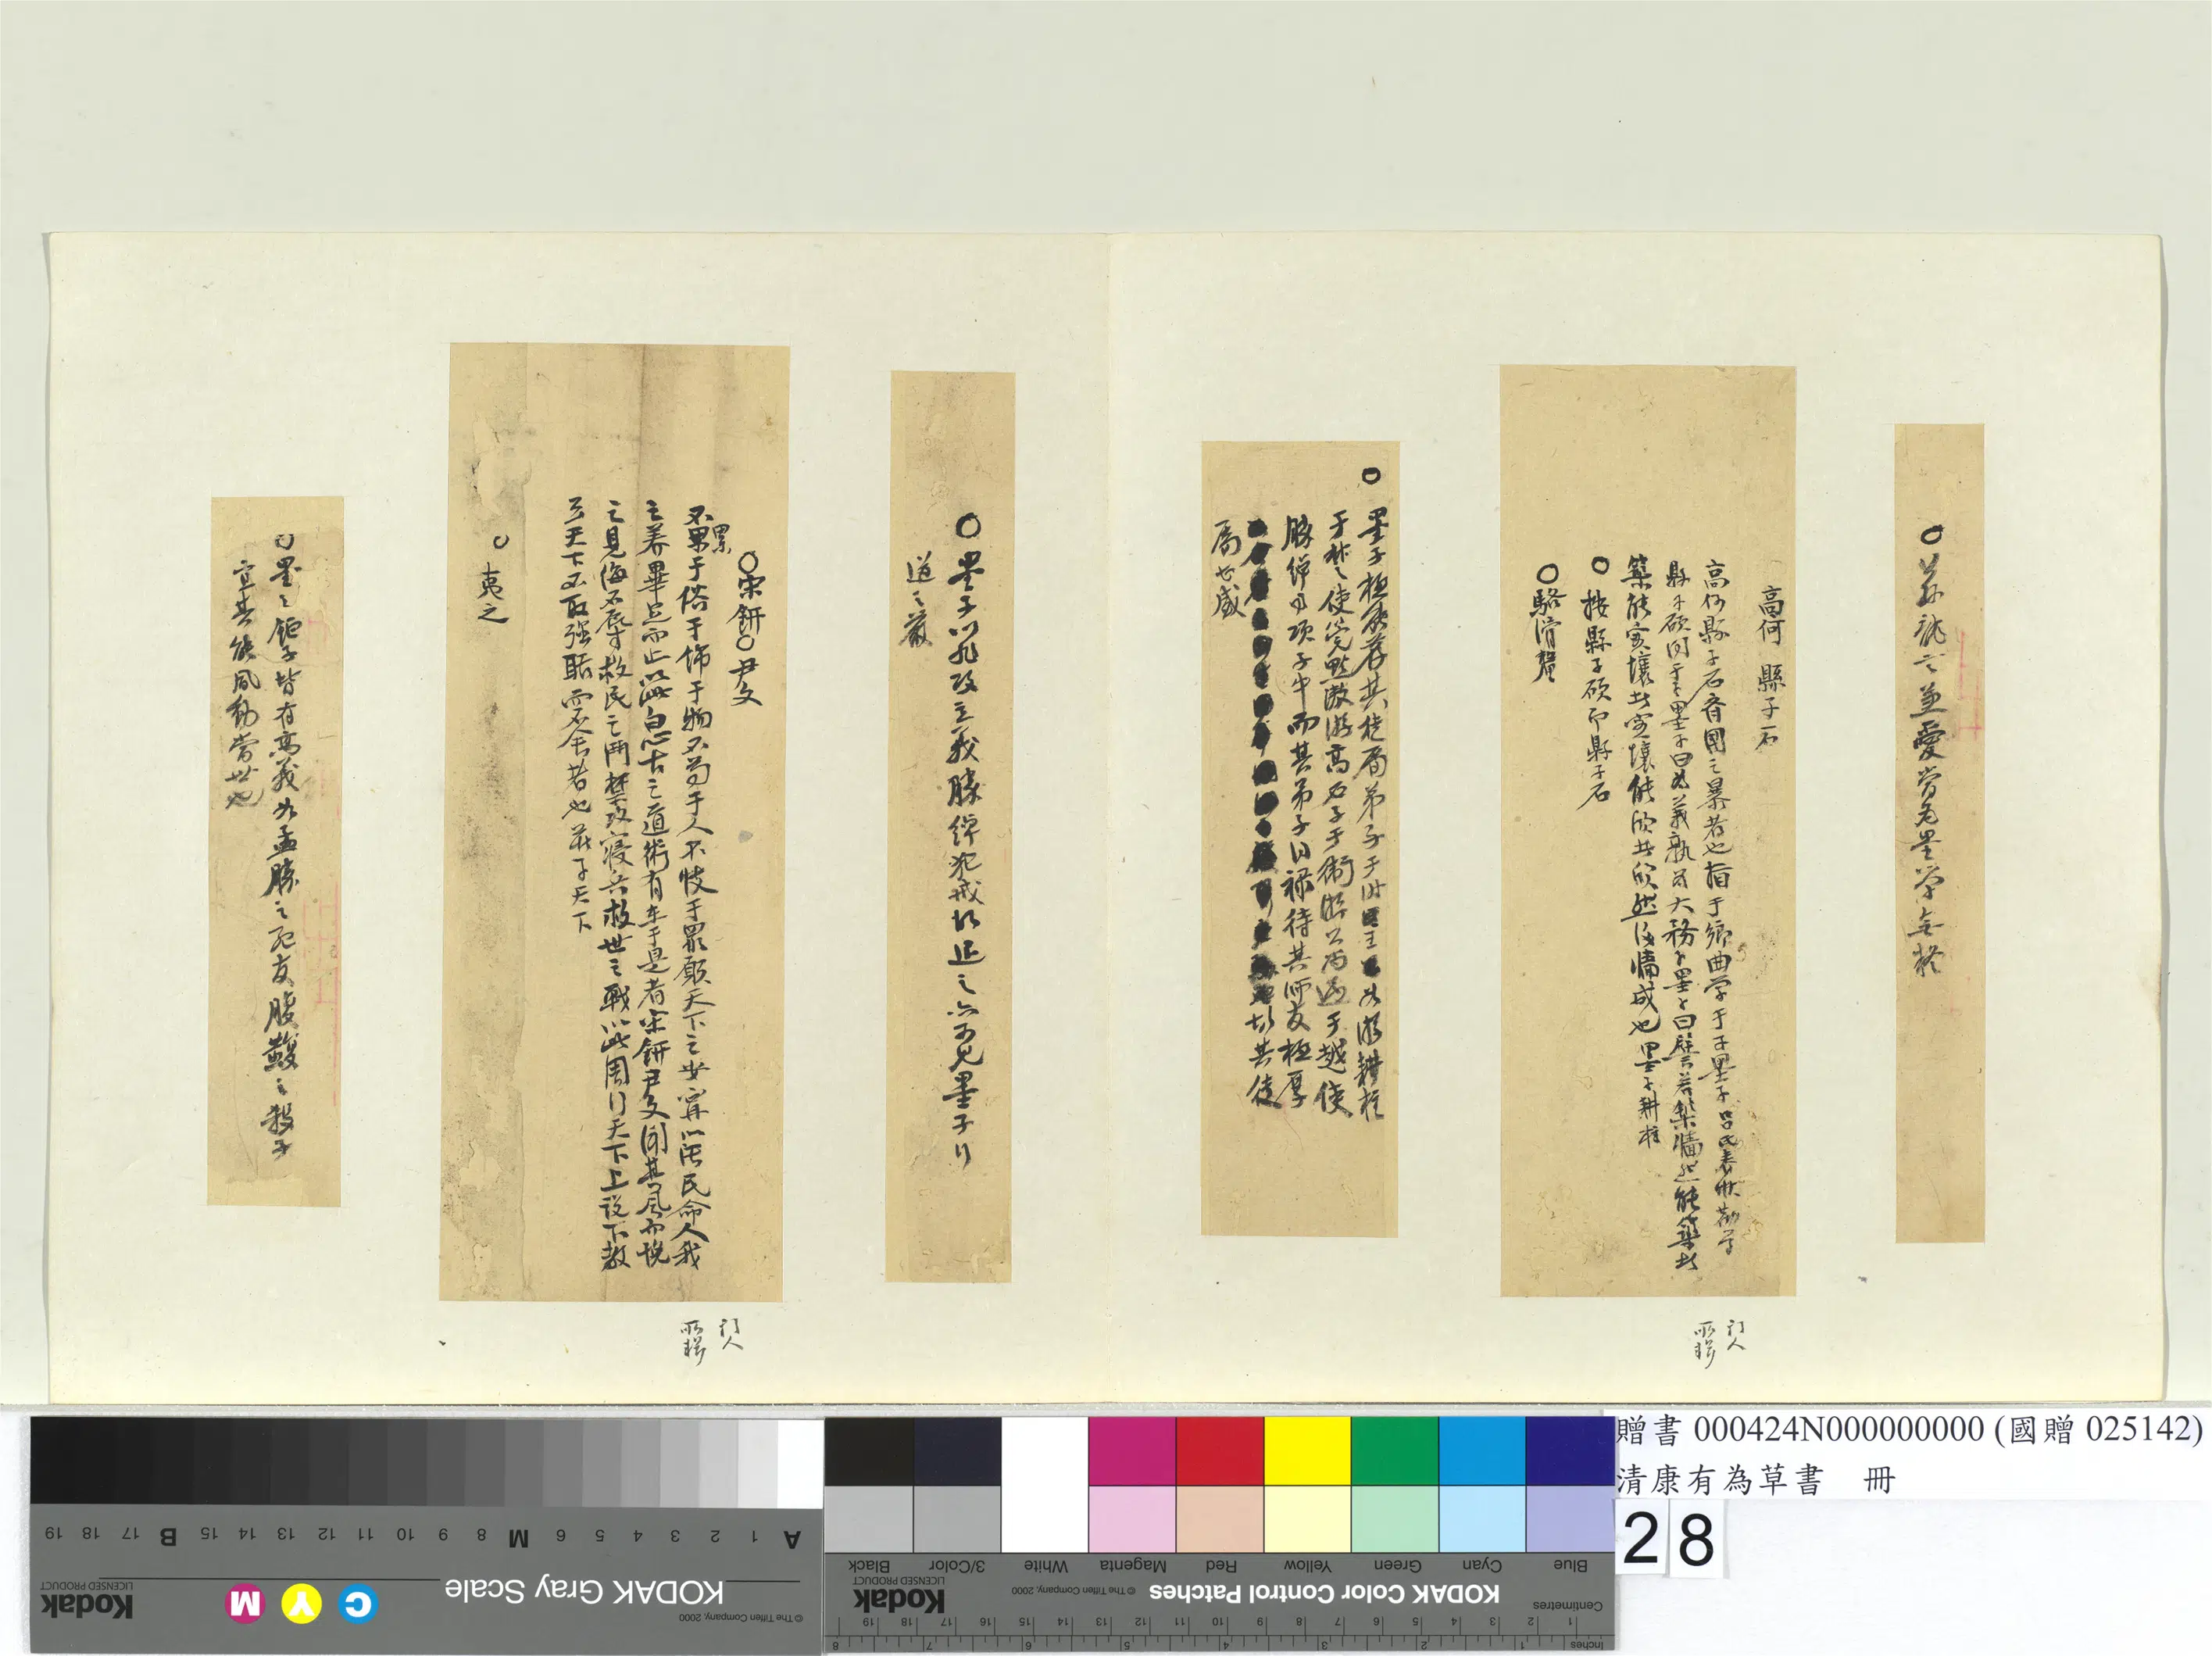 ○公孫龍言兼愛當為墨學無疑
高何 縣子石
高何縣子石齊國之暴者也指于鄉曲學于子墨子 呂氏春秋尊師
縣子碩問于子墨子曰為義孰為大務子墨子曰譬若築牆然能築者
築能實壤者實壤能欣者欣然後牆成也 墨子耕柱
○按縣子碩即縣子石
○駱滑氂
○墨子極務荐其徒屬弟子于時王如游耕柱
于楚使管黔滶游高石子于衛游公尚過于越使
勝綽事項子牛而其弟子得祿待其師友極厚
故其徒
屬也盛
○墨子以非攻立義勝綽犯戒故退之亦可見墨子行
道之嚴
○宋鈃○尹文
累
不累于俗不飾于物不苟于人不忮于眾願天下之安寧以活民命人我
之養畢足而止以此白心古之道術有在于是者宋鈃尹文聞其風而悅
之見侮不辱救民之鬥禁攻寢兵救世之戰以此周行天下上說下教
雖天下不取強聒而不舍者也 莊子天下
○夷之
○墨之鉅子皆有高義如孟勝之死友腹䵍之殺子
宜其能風動當世也
行人
所攷
行人
所攷
贈書 000424N000000000 (國贈 025142)
清康有為草書 冊
28
KODAK Gray Scale
© The Tiffen Company, 2000
Kodak
LICENSED PRODUCT
C Y M
A 1 2 3 4 5 6 M 8 9 10 11 12 13 14 15 B 17 18 19
KODAK Color Control Patches
© The Tiffen Company, 2000
Kodak
LICENSED PRODUCT
Blue Cyan Green Yellow Red Magenta White 3/Color Black
Centimetres
Inches